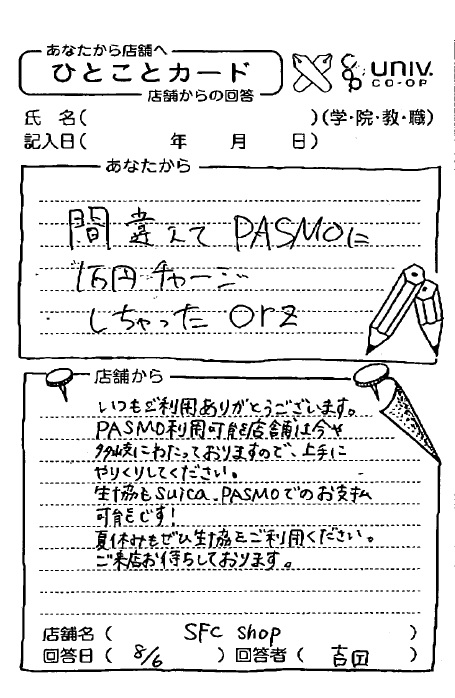 あなたから店舗へ
ひとことカード
店舗からの回答
UNIV.
CO-OP
氏 名( )(学・院・教・職)
記入日( 年 月 日)
あなたから
間違えてPASMOに
1万円チャージ
しちゃった orz
店舗から
いつもご利用ありがとうございます。
PASMO利用可能店舗は今や
多岐にわたっておりますので、上手に
やりくりしてください。
生協もSuica、PASMOでのお支払
可能です!
夏休みもぜひ生協をご利用ください。
ご来店お待ちしております。
店舗名( SFC shop )
回答日( 8/6 )回答者( 吉田 )